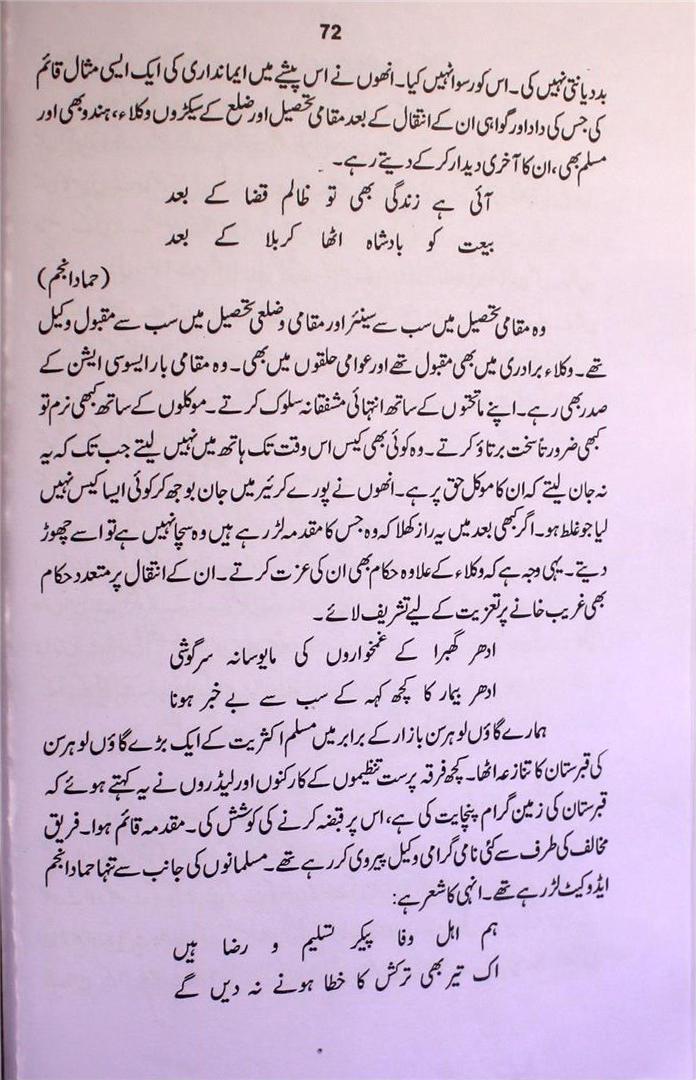 72
بددیانتی نہیں کی۔ اس کو رسوا نہیں کیا۔ انھوں نے اس پیشے میں ایمانداری کی ایک ایسی مثال قائم
کی جس کی داد اور گواہی ان کے انتقال کے بعد مقامی تحصیل اور ضلع کے سیکڑوں وکلاء، ہندو بھی اور
مسلم بھی، ان کا آخری دیدار کر کے دیتے رہے۔
آئی ہے زندگی بھی تو ظالم قضا کے بعد
بیعت کو بادشاہ اٹھا کربلا کے بعد
(حماد انجم)
وہ مقامی تحصیل میں سب سے سینئر اور مقامی و ضلعی تحصیل میں سب سے مقبول وکیل
تھے۔ وکلاء برادری میں بھی مقبول تھے اور عوامی حلقوں میں بھی۔ وہ مقامی بار ایسوسی ایشن کے
صدر بھی رہے۔ اپنے ماتحتوں کے ساتھ انتہائی مشفقانہ سلوک کرتے۔ موکلوں کے ساتھ کبھی نرم تو
کبھی ضرورتاً سخت برتاؤ کرتے۔ وہ کوئی بھی کیس اس وقت تک ہاتھ میں نہیں لیتے جب تک کہ یہ
نہ جان لیتے کہ ان کا موکل حق پر ہے۔ انھوں نے پورے کرئیر میں جان بوجھ کر کوئی ایسا کیس نہیں
لیا جو غلط ہو۔ اگر کبھی بعد میں یہ راز کھلا کہ وہ جس کا مقدمہ لڑ رہے ہیں وہ سچا نہیں ہے تو اسے چھوڑ
دیتے۔ یہی وجہ ہے کہ وکلاء کے علاوہ حکام بھی ان کی عزت کرتے۔ ان کے انتقال پر متعدد حکام
بھی غریب خانے پر تعزیت کے لیے تشریف لائے۔
ادھر گھبرا کے غمخواروں کی مایوسانہ سرگوشی
ادھر بیمار کا کچھ کہہ کے سب سے بے خبر ہونا
ہمارے گاؤں لوہرسن بازار کے برابر میں مسلم اکثریت کے ایک بڑے گاؤں لوہرسن
کی قبرستان کا تنازعہ اٹھا۔ کچھ فرقہ پرست تنظیموں کے کارکنوں اور لیڈروں نے یہ کہتے ہوئے کہ
قبرستان کی زمین گرام پنچایت کی ہے، اس پر قبضہ کرنے کی کوشش کی۔ مقدمہ قائم ہوا۔ فریق
مخالف کی طرف سے کئی نامی گرامی وکیل پیروی کر رہے تھے۔ مسلمانوں کی جانب سے تنہا حماد انجم
ایڈوکیٹ لڑ رہے تھے۔ انہی کا شعر ہے:
ہم اہل وفا پیکر تسلیم و رضا ہیں
اک تیر بھی ترکش کا خطا ہونے نہ دیں گے